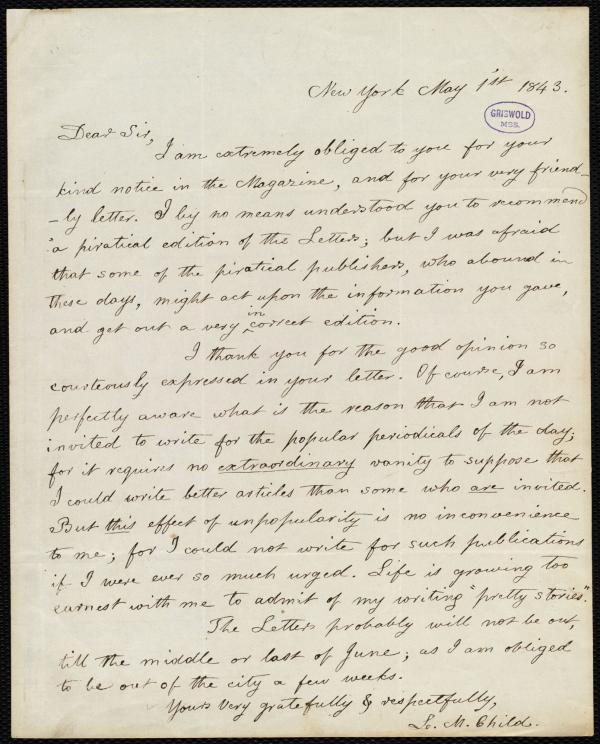 New York May 1st 1843.
GRISWOLD
MSS.
Dear Sir,
I am extremely obliged to you for your
kind notice in the Magazine, and for your very friend-
-ly letter. I by no means understood you to recommend
a piratical edition of the Letters; but I was afraid
that some of the piratical publishers, who abound in
these days, might act upon the information you gave,
in
and get out a very correct edition.
I thank you for the good opinion so
courteously expressed in your letter. Of course, I am
perfectly aware what is the reason that I am not
invited to write for the popular periodicals of the day;
for it requires no extraordinary vanity to suppose that
I could write better articles than some who are invited.
But this effect of unpopularity is no inconvenience
to me; for I could not write for such publications
if I were ever so much urged. Life is growing too
earnest with me to admit of my writing "pretty stories".
The Letters probably will not be out,
till the middle or last of June; as I am obliged
to be out of the city a few weeks.
Yours very gratefully & respectfully,
L. M. Child.